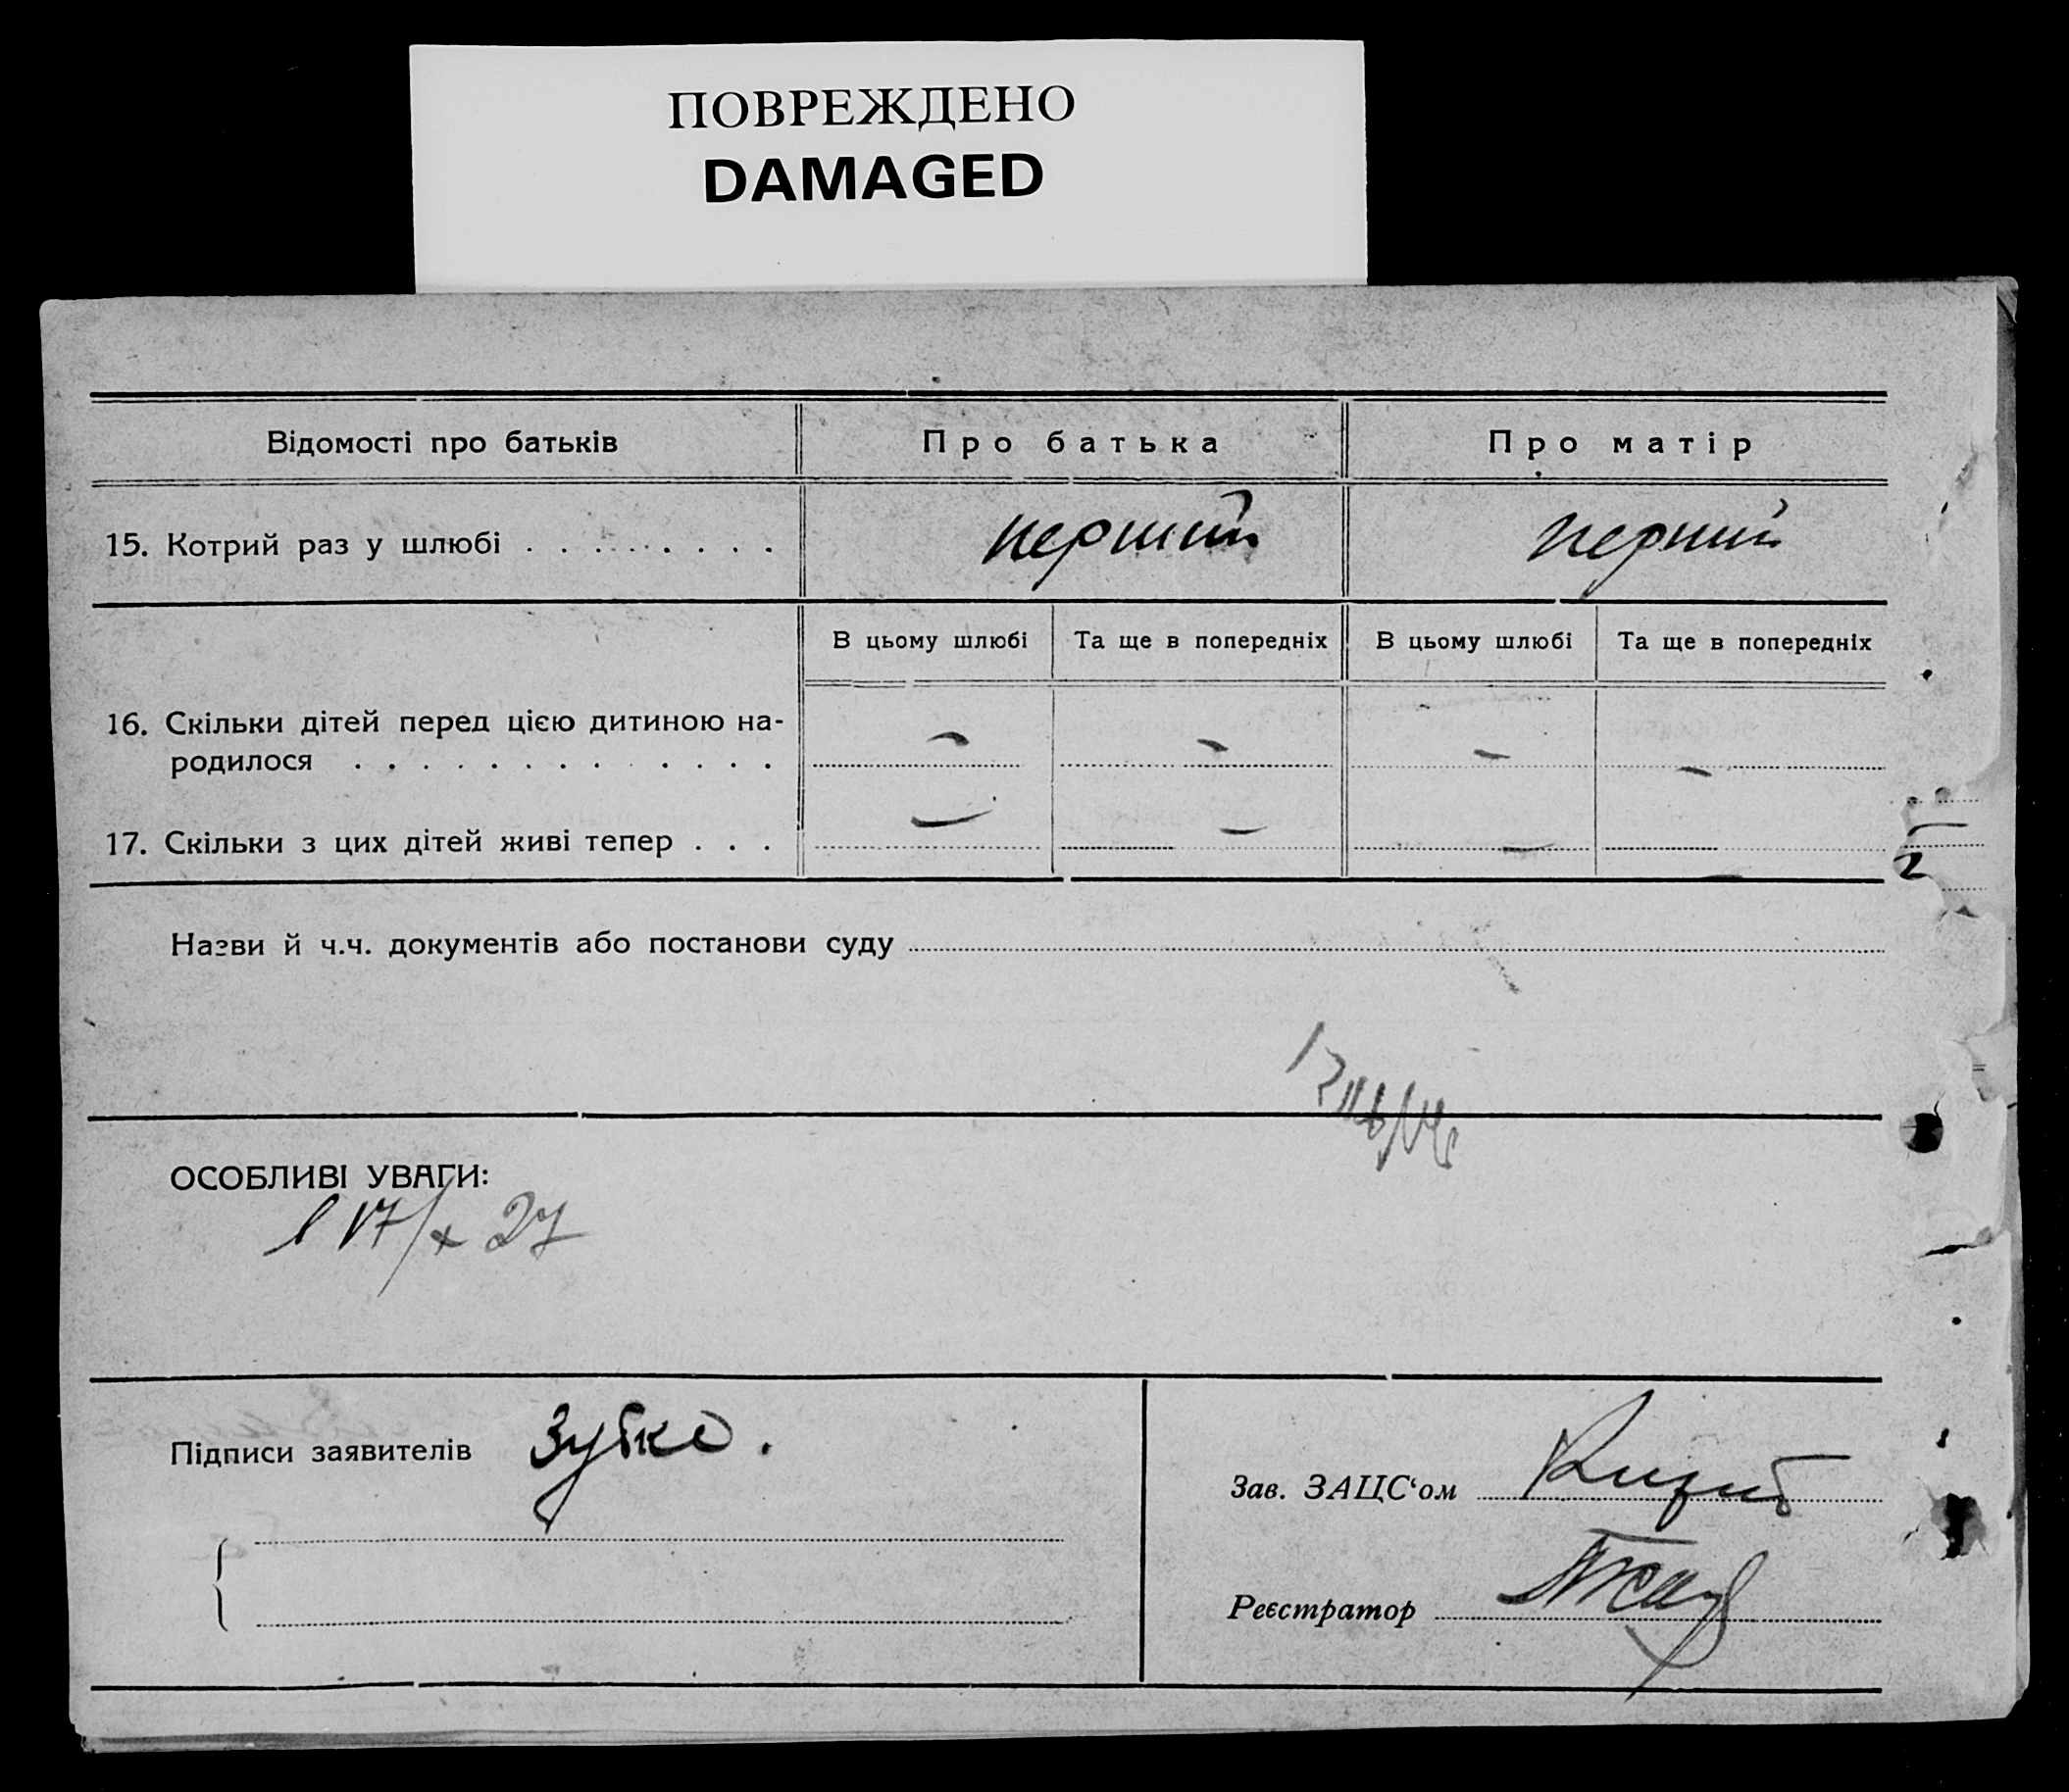 ПОВРЕЖДЕНО
DAMAGED
Відомості про батьків
Про батька
Про матір
15. Котрий раз у шлюбі . . . . . . . . .
перший
перший
В цьому шлюбі
Та ще в попередніх
В цьому шлюбі
Та ще в попередніх
16. Скільки дітей перед цією дитиною на-
родилося . . . . . . . . . . . . .
– – – –
17. Скільки з цих дітей живі тепер . . .
– – – –
2
Назви й ч.ч. документів або постанови суду
ОСОБЛИВІ УВАГИ:
17/x 27
Підписи заявителів Зубко.
Зав. ЗАЦС‘ом
Реєстратор